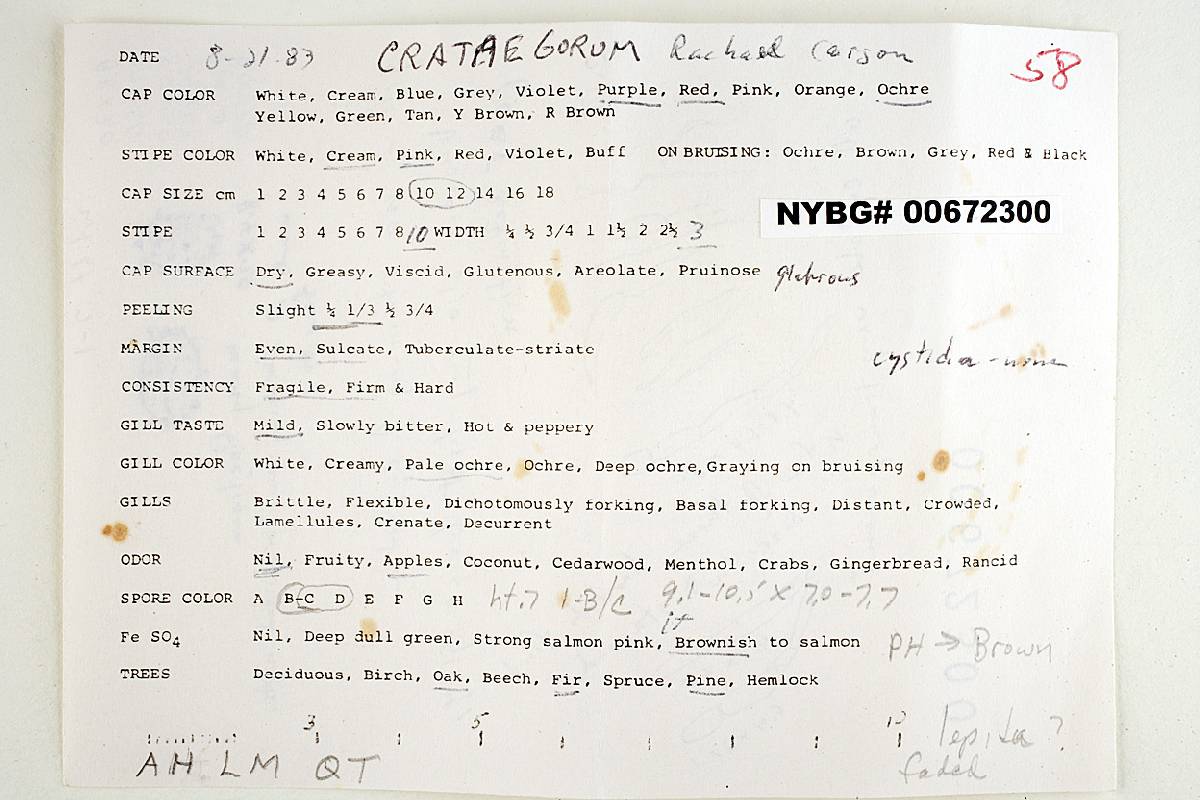 DATE 8-21-83 CRATAEGORUM Rachael Carson 58
CAP COLOR White, Cream, Blue, Grey, Violet, Purple, Red, Pink, Orange, Ochre
Yellow, Green, Tan, Y Brown, R Brown
STIPE COLOR White, Cream, Pink, Red, Violet, Buff ON BRUISING: Ochre, Brown, Grey, Red & Black
CAP SIZE cm 1 2 3 4 5 6 7 8 10 12 14 16 18
NYBG# 00672300
STIPE 1 2 3 4 5 6 7 8 10 WIDTH ¼ ½ 3/4 1 1½ 2 2½ 3
CAP SURFACE Dry, Greasy, Viscid, Glutenous, Areolate, Pruinose glabrous
PEELING Slight ¼ 1/3 ½ 3/4
MARGIN Even, Sulcate, Tuberculate-striate
cystidia - none
CONSISTENCY Fragile, Firm & Hard
GILL TASTE Mild, Slowly bitter, Hot & peppery
GILL COLOR White, Creamy, Pale ochre, Ochre, Deep ochre, Graying on bruising
GILLS Brittle, Flexible, Dichotomously forking, Basal forking, Distant, Crowded,
Lamellules, Crenate, Decurrent
ODOR Nil, Fruity, Apples, Coconut, Cedarwood, Menthol, Crabs, Gingerbread, Rancid
SPORE COLOR A B-C D E F G H ht.7 1-B/C 9.1-10.5 X 7.0-7.7
Fe SO4 Nil, Deep dull green, Strong salmon pink, Brownish to salmon PH → Brown
TREES Deciduous, Birch, Oak, Beech, Fir, Spruce, Pine, Hemlock
3 5 10 lepida ?
AH LM QT faded